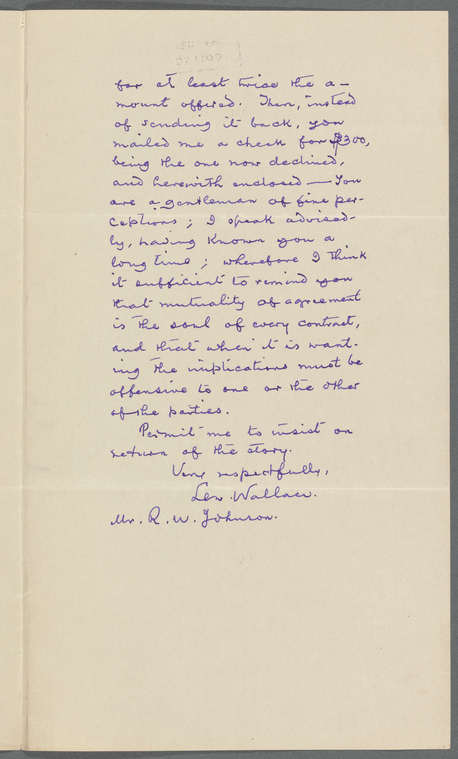 for at least twice the a-
mount offered. Then, instead
of sending it back, you
mailed me a check for $300,
being the one now declined,
and herewith enclosed — You
are a gentleman of fine per-
ceptions; I speak advised-
ly, having known you a
long time; wherefore I think
it sufficient to remind you
that mutuality of agreement
is the soul of every contract,
and that when it is want-
ing the implications must be
offensive to one or the other
of the parties.
Permit me to insist on
return of the story.
Very respectfully,
Lew. Wallace.
Mr. R. W. Johnson.